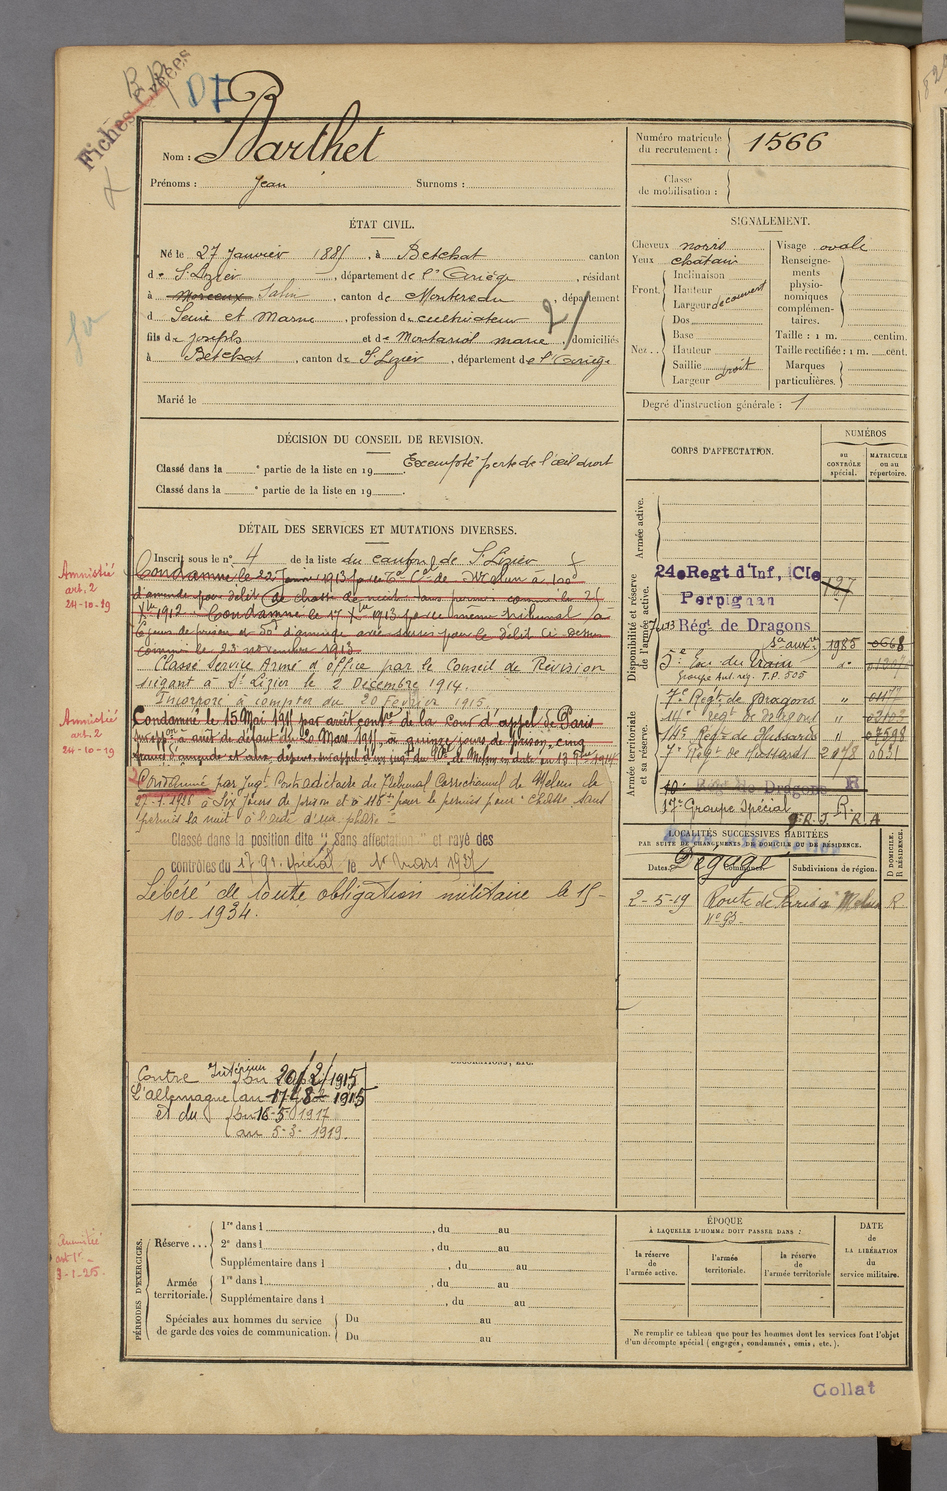 Fiches
Nom : Barthet
Prénoms : Jean Surnoms :
Numéro matricule
du recrutement : 1566
Classe
de mobilisation :
ÉTAT CIVIL.
Né le 27 Janvier 1885, à Betchat canton
de St Lizier, département de l'Ariège, résidant
à Morceux Salin, canton de Montereau, département
d Seine et Marne, profession de cultivateur
fils de Joseph et de Montariol marie, domiciliés
à Betchat, canton de St Lizier, département de l'Ariège
Marié le
SIGNALEMENT.
Cheveux noirs
Yeux chatain
Front. Inclinaison
Hauteur
Largeur decouvert
Nez .. Dos
Base
Hauteur
Saillie droit
Largeur
Visage ovale
Renseigne-
ments
physio-
nomiques
complémen-
taires.
Taille : 1 m. centim.
Taille rectifiée : 1 m. cent.
Marques
particulières.
Degré d'instruction générale : 1
DÉCISION DU CONSEIL DE REVISION.
Classé dans la e partie de la liste en 19 Exempté perte de l'œil droit
Classé dans la e partie de la liste en 19
DÉTAIL DES SERVICES ET MUTATIONS DIVERSES.
Inscrit sous le n° 4 de la liste du canton de St Lizier
Condamné le 22 Janv 1913 par le Cel de Melun à 100f
d'amende pour délit de chasse de nuit sans permis commis le 21
Xbre 1912. Condamné le 17 Xbre 1913 par le même tribunal à
6 jours de prison et 50f d'amende avec sursis pour le délit ci-dessus
commis le 23 novembre 1913
Classé Service Armé d'office par le Conseil de Révision
siégant à St Lizier le 2 Décembre 1914.
Incorporé à compter du 20 Février 1915
Condamné le 15 Mai 1915 par arrêt contre de la Cour d'appel de Paris
à arrêt de défaut du 20 Mars 1915, à quinze jours de prison, cinq
Condamné par Jugt Contradictoire du Tribunal Correctionnel de Melun le
27-1-1926 à Six Jours de prison et à
permis la nuit à l'aide d'un phare =
Classé dans la position dite " Sans affectation " et rayé des
contrôles du 17 Gr. Spécial le 1er Mars 1931
Libéré de toute obligation militaire le 15-
10-1934.
Amnistié
art. 2
24-10-19
Amnistié
art. 2
24-10-19
Amnistié
art 1er
3-1-25.
CORPS D'AFFECTATION.
NUMÉROS
au
CONTRÔLE
spécial.
MATRICULE
ou au
répertoire.
Armée active.
Disponibilité et réserve
de l'armée active.
Armée territoriale
et sa réserve.
24e Regt d'Inf, Cie
Perpignan
Régt de Dragons
Sce auxre 1985 0668
5e Esc. du Train
Groupe Aut. reg. T.P. 505
7e Régt de Dragons
14e regt de dragons
11e Regt de Hussards
7e Régt de Hussards 2078 0031
Regt de Dragons R
17e Groupe Spécial R.
LOCALITÉS SUCCESSIVES HABITÉES
PAR SUITE DE CHANGEMENTS DE DOMICILE OU DE RÉSIDENCE.
Dates. Communes. Subdivisions de région.
D DOMICILE.
R RÉSIDENCE.
Dégagé
2-5-19 Route de Paris à Melun R
N° 93
Contre Intérieur du 20/2/1915
L'allemagne au 1915
et du du 16-5-1917
au 5-3-1919.
PÉRIODES D'EXERCICES.
Réserve ... 1re dans l , du au
2e dans l , du au
Supplémentaire dans l , du au
Armée
territoriale. 1re dans l , du au
Supplémentaire dans l , du au
Spéciales aux hommes du service
de garde des voies de communication. Du au
Du au
ÉPOQUE
À LAQUELLE L'HOMME DOIT PASSER DANS :
la réserve
de
l'armée active.
l'armée
territoriale.
la réserve
de
l'armée territoriale
DATE
de
LA LIBÉRATION
du
service militaire.
Ne remplir ce tableau que pour les hommes dont les services font l'objet
d'un décompte spécial ( engagés, condamnés, omis, etc. ).
Collat